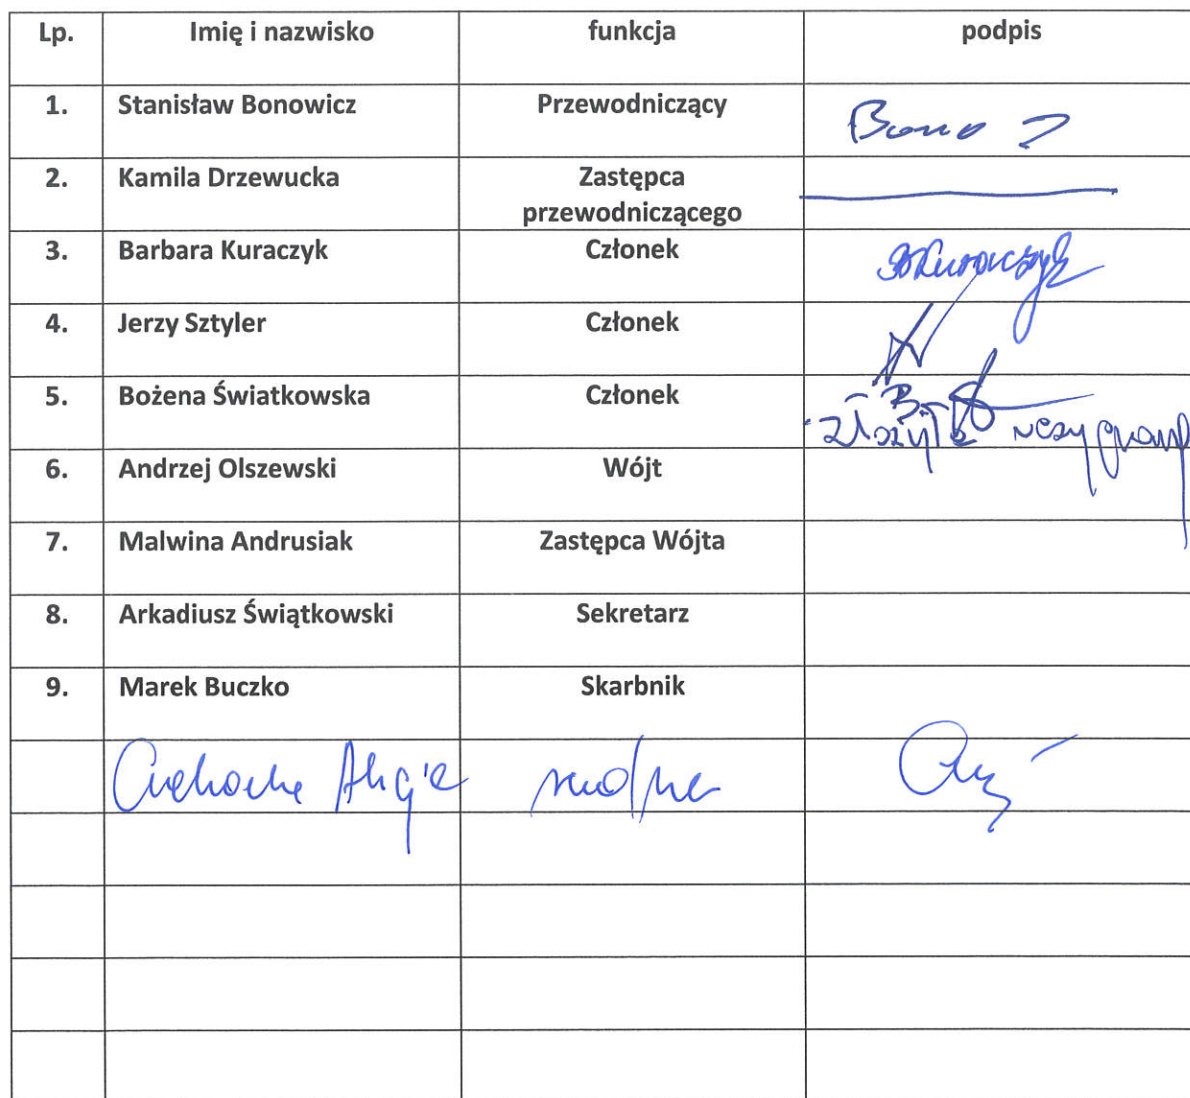 Lp. Imię i nazwisko funkcja podpis
1. Stanisław Bonowicz Przewodniczący
2. Kamila Drzewucka Zastępca
przewodniczącego
3. Barbara Kuraczyk Członek BKuraczyk
4. Jerzy Sztyler Członek
5. Bożena Światkowska Członek
złożyła rezygnację
6. Andrzej Olszewski Wójt
7. Malwina Andrusiak Zastępca Wójta
8. Arkadiusz Świątkowski Sekretarz
9. Marek Buczko Skarbnik
Alicja radna